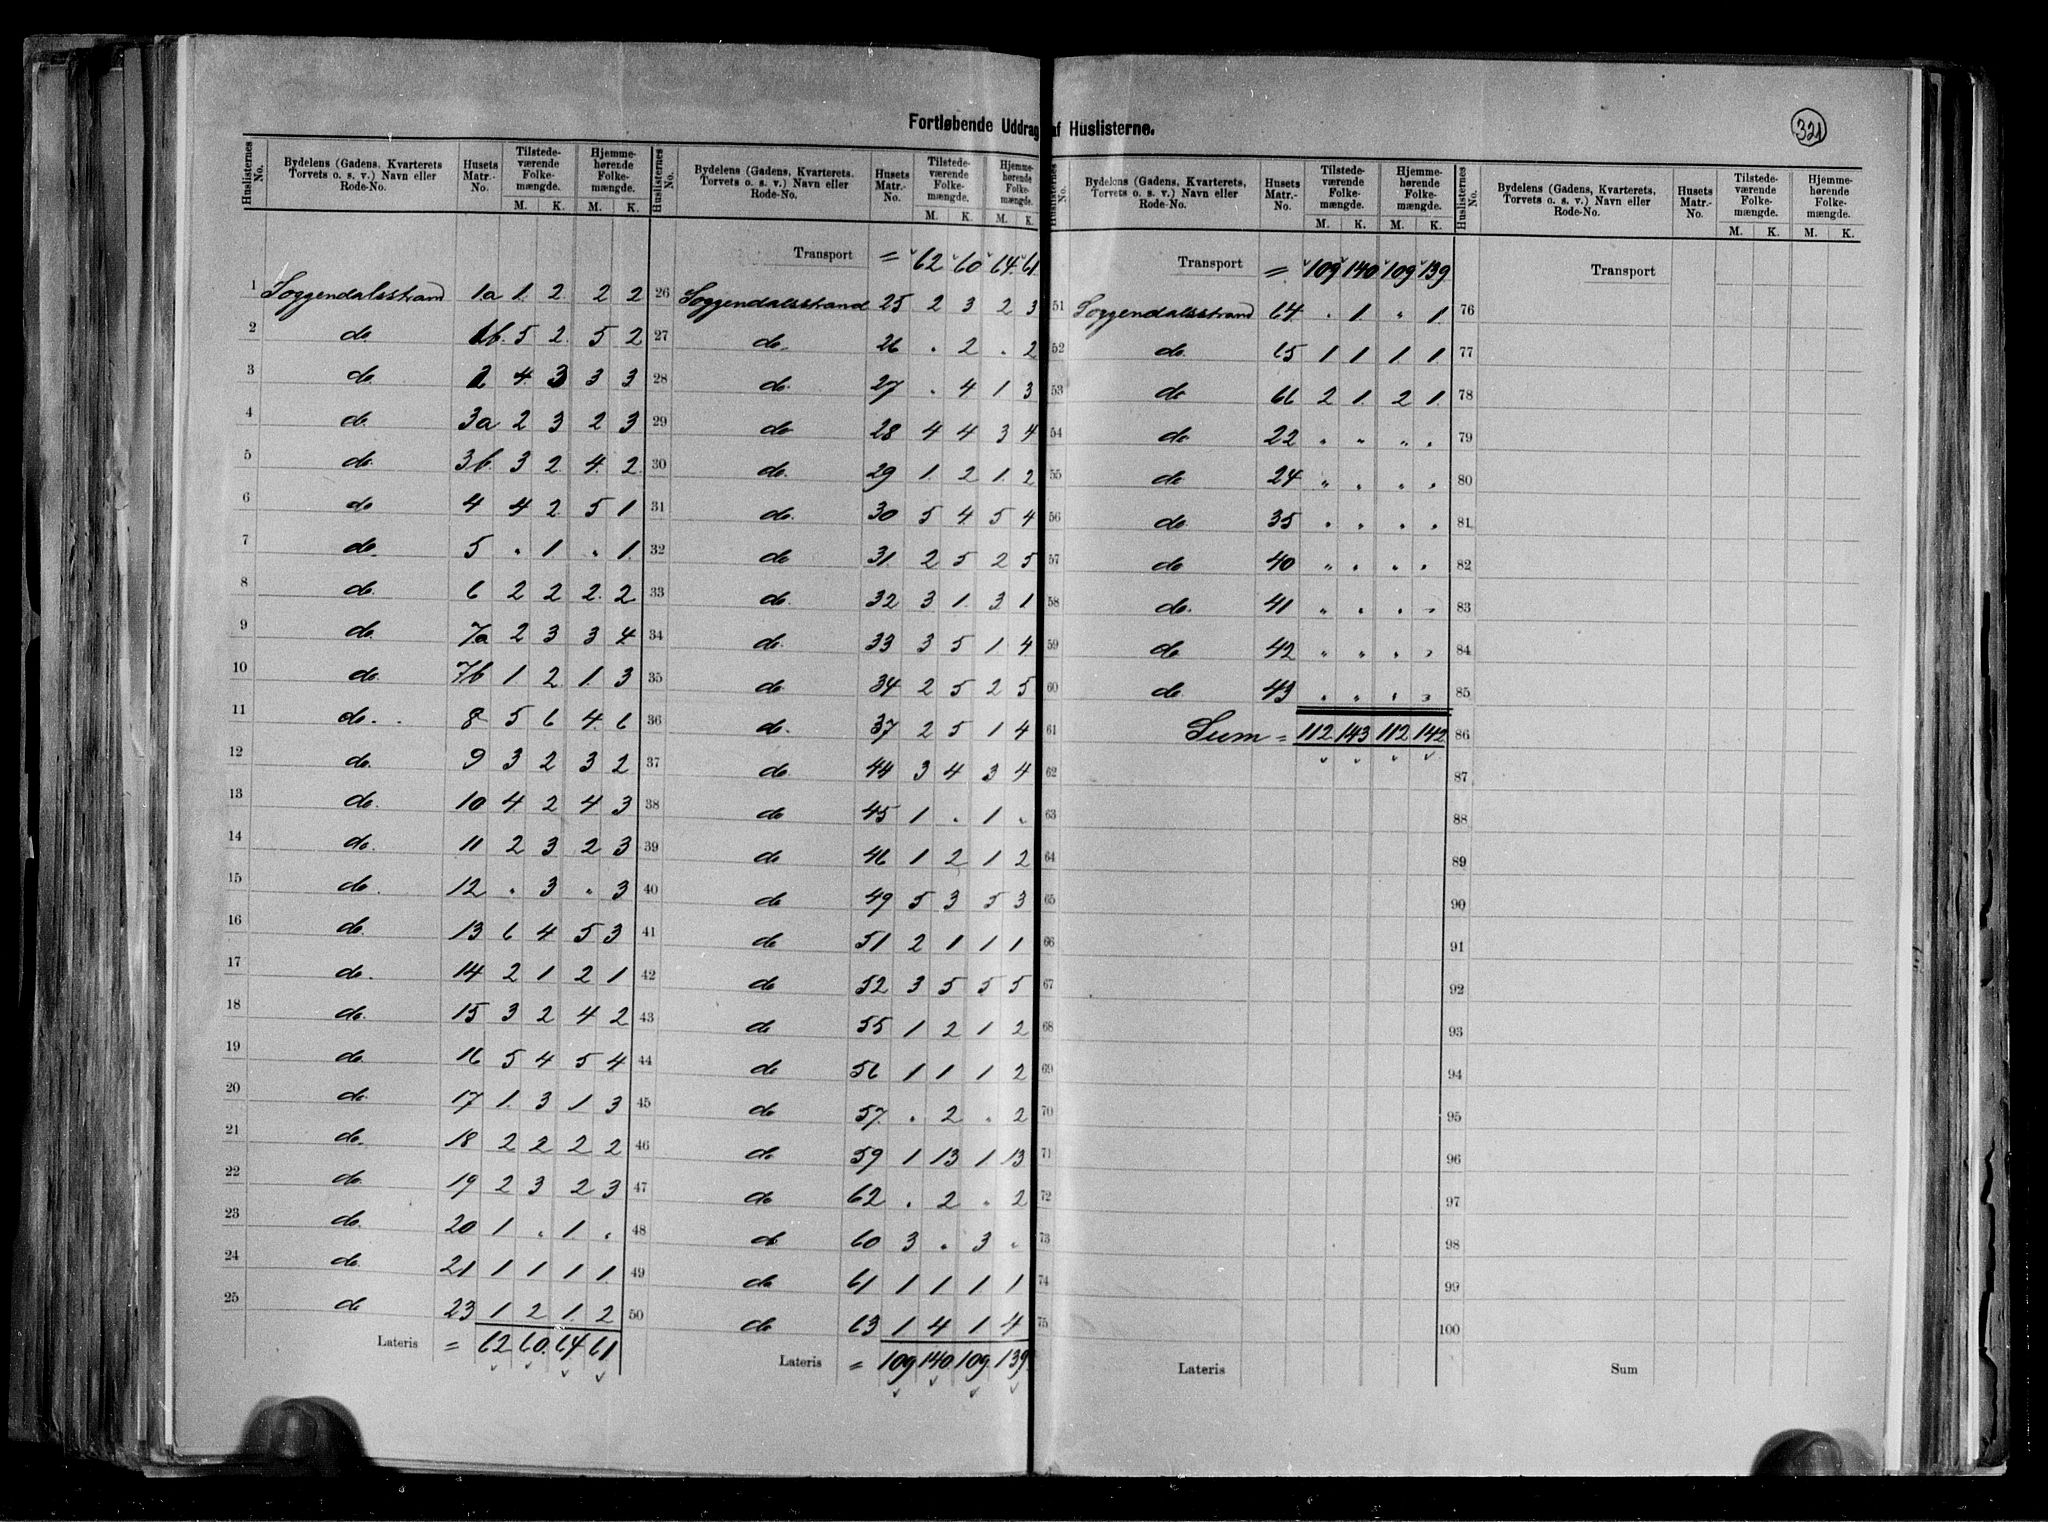 Fortløbende Uddrag af Huslisterne.
321
Huslisternes No. | Bydelens (Gadens, Kvarterets Torvets o. s. v.) Navn eller Rode-No. | Husets Matr.-No. | Tilstedeværende Folkemængde. M. K. | Hjemmehørende Folkemængde. M. K.
1 Soggendalsstrand 1a 1. 2. 2 2
2 do 1b. 5 2. 5 2
3 do. 2 4 3 3 3
4 do. 3a 2 3 2 3
5 do. 3b. 3 2. 4. 2
6 do 4 4 2 5 1
7 do. 5 . 1 . 1.
8 do. 6 2 2 2. 2
9 do. 7a 2 3 3 4
10 do. 7b 1 2 1. 3
11 do. 8 5 6 4. 6
12 do. 9 3 2 3 2
13 do. 10 4 2 4 3
14 do. 11 2 3 2 3
15 do. 12 . 3 " 3
16 do. 13 6 4 5 3
17 do. 14 2 1 2 1
18 do. 15 3 2 4 2
19 do. 16 5 4 5 4
20 do. 17 1. 3 1 3
21 do. 18 2 2 2 2
22 do. 19 2 3 2 3
23 do. 20 1 . 1 .
24 do. 21 1 1 1 1.
25 do 23 1 2 1. 2
Lateris = 62 60. 64 61
Huslisternes No. | Bydelens (Gadens, Kvarterets, Torvets o. s. v.) Navn eller Rode-No. | Husets Matr.-No. | Tilstedeværende Folkemængde. M. K. | Hjemmehørende Folkemængde. M. K.
Transport = 62 60 64. 61.
26 Soggendalsstrand 25 2 3 2 3
27 do. 26 . 2 . 2
28 do. 27 . 4 1 3
29 do 28 4 4 3 4
30 do. 29 1. 2 1. 2
31 do. 30 5 4 5 4
32 do 31. 2 5 2 5
33 do. 32 3 1. 3 1
34 do. 33 3 5 1. 4
35 do. 34 2 5 2 5
36 do. 37 2 5 1 4
37 do 44 3 4 3 4
38 do 45 1 . 1 .
39 do 46 1 2 1 2
40 do 49 5 3 5 3
41 do 51 2 1 1 1
42 do 52 3 5 5 5
43 do 55 1 2 1 2
44 do 56 1 1 1 2
45 do 57. . 2 . 2
46 do 59 1 13 1 13
47 do 62 . 2 . 2
48 do 60 3 . 3 .
49 do 61 1 1 1 1
50 do 63 1 4 1 4
Lateris = 109 140. 109. 139
Huslisternes No. | Bydelens (Gadens, Kvarterets, Torvets o. s. v.) Navn eller Rode-No. | Husets Matr.-No. | Tilstedeværende Folkemængde. M. K. | Hjemmehørende Folkemængde. M. K.
Transport = 109 140 109 139
51 Soggendalsstrand 64. . 1. " 1.
52 do. 65 1 1 1 1
53 do 66 2 1. 2 1.
54 do 22 " " " .
55 do 24 " " " "
56 do 35 " " " "
57 do 40 " " " "
58 do. 41 " " " "
59 do 42 " " " "
60 do 43 " " " "
61 Sum = 112 143 112 142
62
63
64
65
66
67
68
69
70
71
72
73
74
75
Lateris
Huslisternes No. | Bydelens (Gadens, Kvarterets, Torvets o. s. v.) Navn eller Rode-No. | Husets Matr.-No. | Tilstedeværende Folkemængde. M. K. | Hjemmehørende Folkemængde. M. K.
Transport
76
77
78
79
80
81
82
83
84
85
86
87
88
89
90
91
92
93
94
95
96
97
98
99
100
Sum